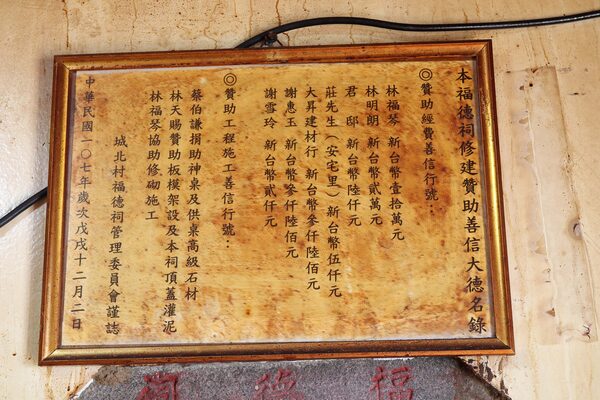 本福德祠修建贊助善信大德名錄
◎贊助經費善信行號：
林福琴 新台幣壹拾萬元
林明朗 新台幣貳萬元
君邸 新台幣陸仟元
莊先生（安宅里）新台幣伍仟元
大昇建材行 新台幣參仟陸佰元
謝惠玉 新台幣參仟陸佰元
謝雪玲 新台幣貳仟元
◎贊助工程施工善信行號：
蔡伯謙捐助神桌及供桌高級石材
林天賜贊助板模架設及本祠頂蓋灌泥
林福琴協助修砌施工
城北村福德祠管理委員會謹誌
中華民國一〇七年歲次戊戌十二月二日
福德祠